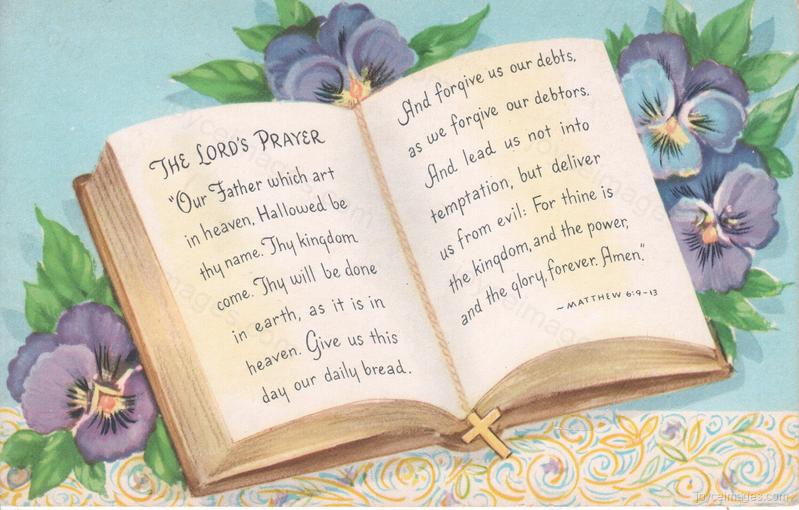 THE LORD'S PRAYER
"Our Father which art
in heaven, Hallowed be
thy name. Thy kingdom
come. Thy will be done
in earth, as it is in
heaven. Give us this
day our daily bread.
And forgive us our debts,
as we forgive our debtors.
And lead us not into
temptation, but deliver
us from evil: For thine is
the kingdom, and the power,
and the glory, forever. Amen."
~MATTHEW 6:9-13
joyceimages.com